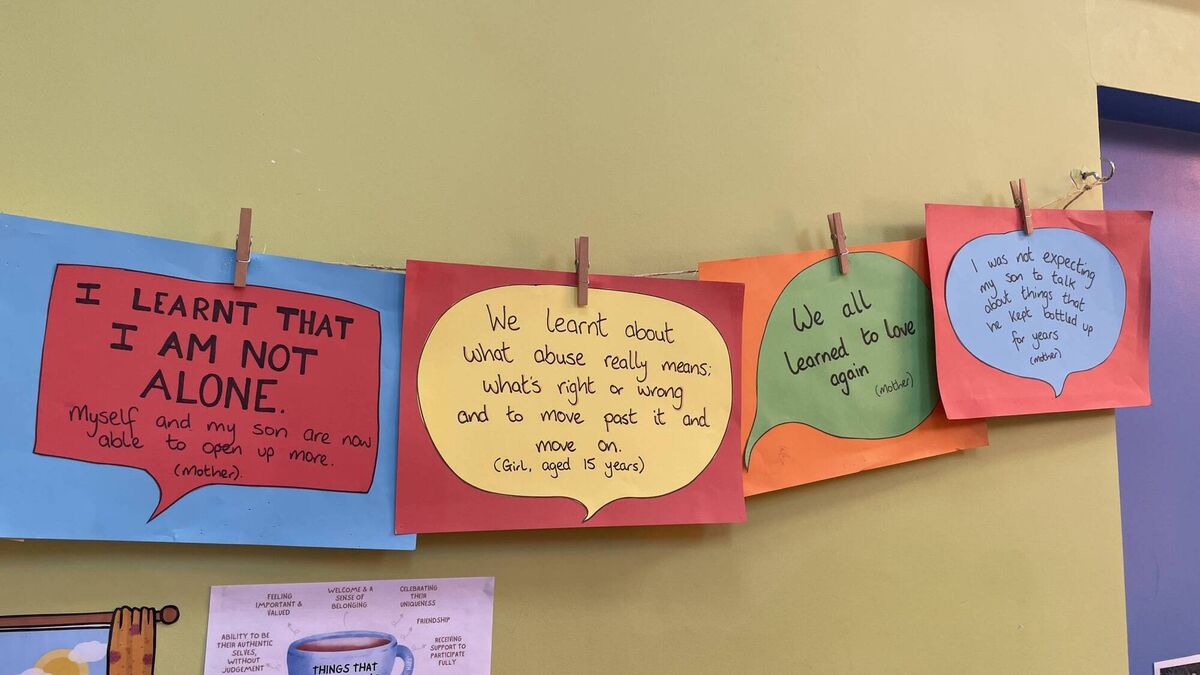 I LEARNT THAT
I AM NOT
ALONE.
Myself and my son are now
able to open up more.
(Mother).
We learnt about
what abuse really means;
what's right or wrong
and to move past it and
move on.
(Girl, aged 15 years)
We all
learned to love
again
(mother)
I was not expecting
my son to talk
about things that
he kept bottled up
for years
(mother)
FEELING
IMPORTANT &
VALUED
WELCOME & A
SENSE OF
BELONGING
CELEBRATING
THEIR
UNIQUENESS
FRIENDSHIP
ABILITY TO BE
THEIR AUTHENTIC
SELVES,
WITHOUT
JUDGEMENT
RECEIVING
SUPPORT TO
PARTICIPATE
FULLY
THINGS THAT